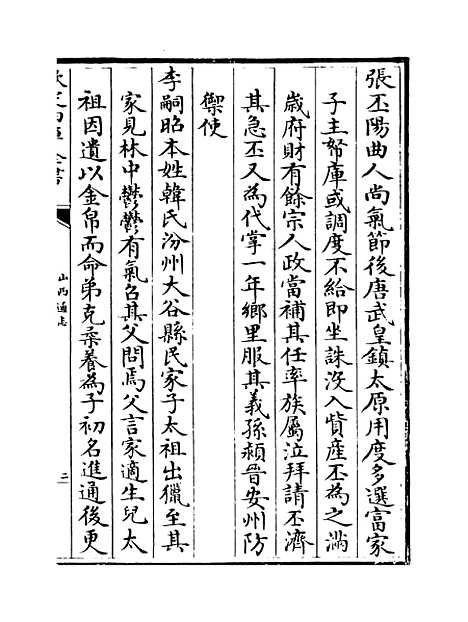 張丕陽曲人尚氣節後唐武皇鎮太原用度多選富家
子主帑庫或調度不給即坐誅没入貲産丕為之滿
嵗府財有餘宗人政當補其任率族屬泣拜請丕濟
其急丕又為代掌一年鄉里服其義孫頴晉安州防
禦使
李嗣昭本姓韓氏汾州大谷縣民家子太祖出獵至其
家見林中鬱鬱有氣召其父問焉父言家適生兒太
祖因遺以金帛而命弟克柔養為子初名進通後更
欽定四庫全書
山西通志
二